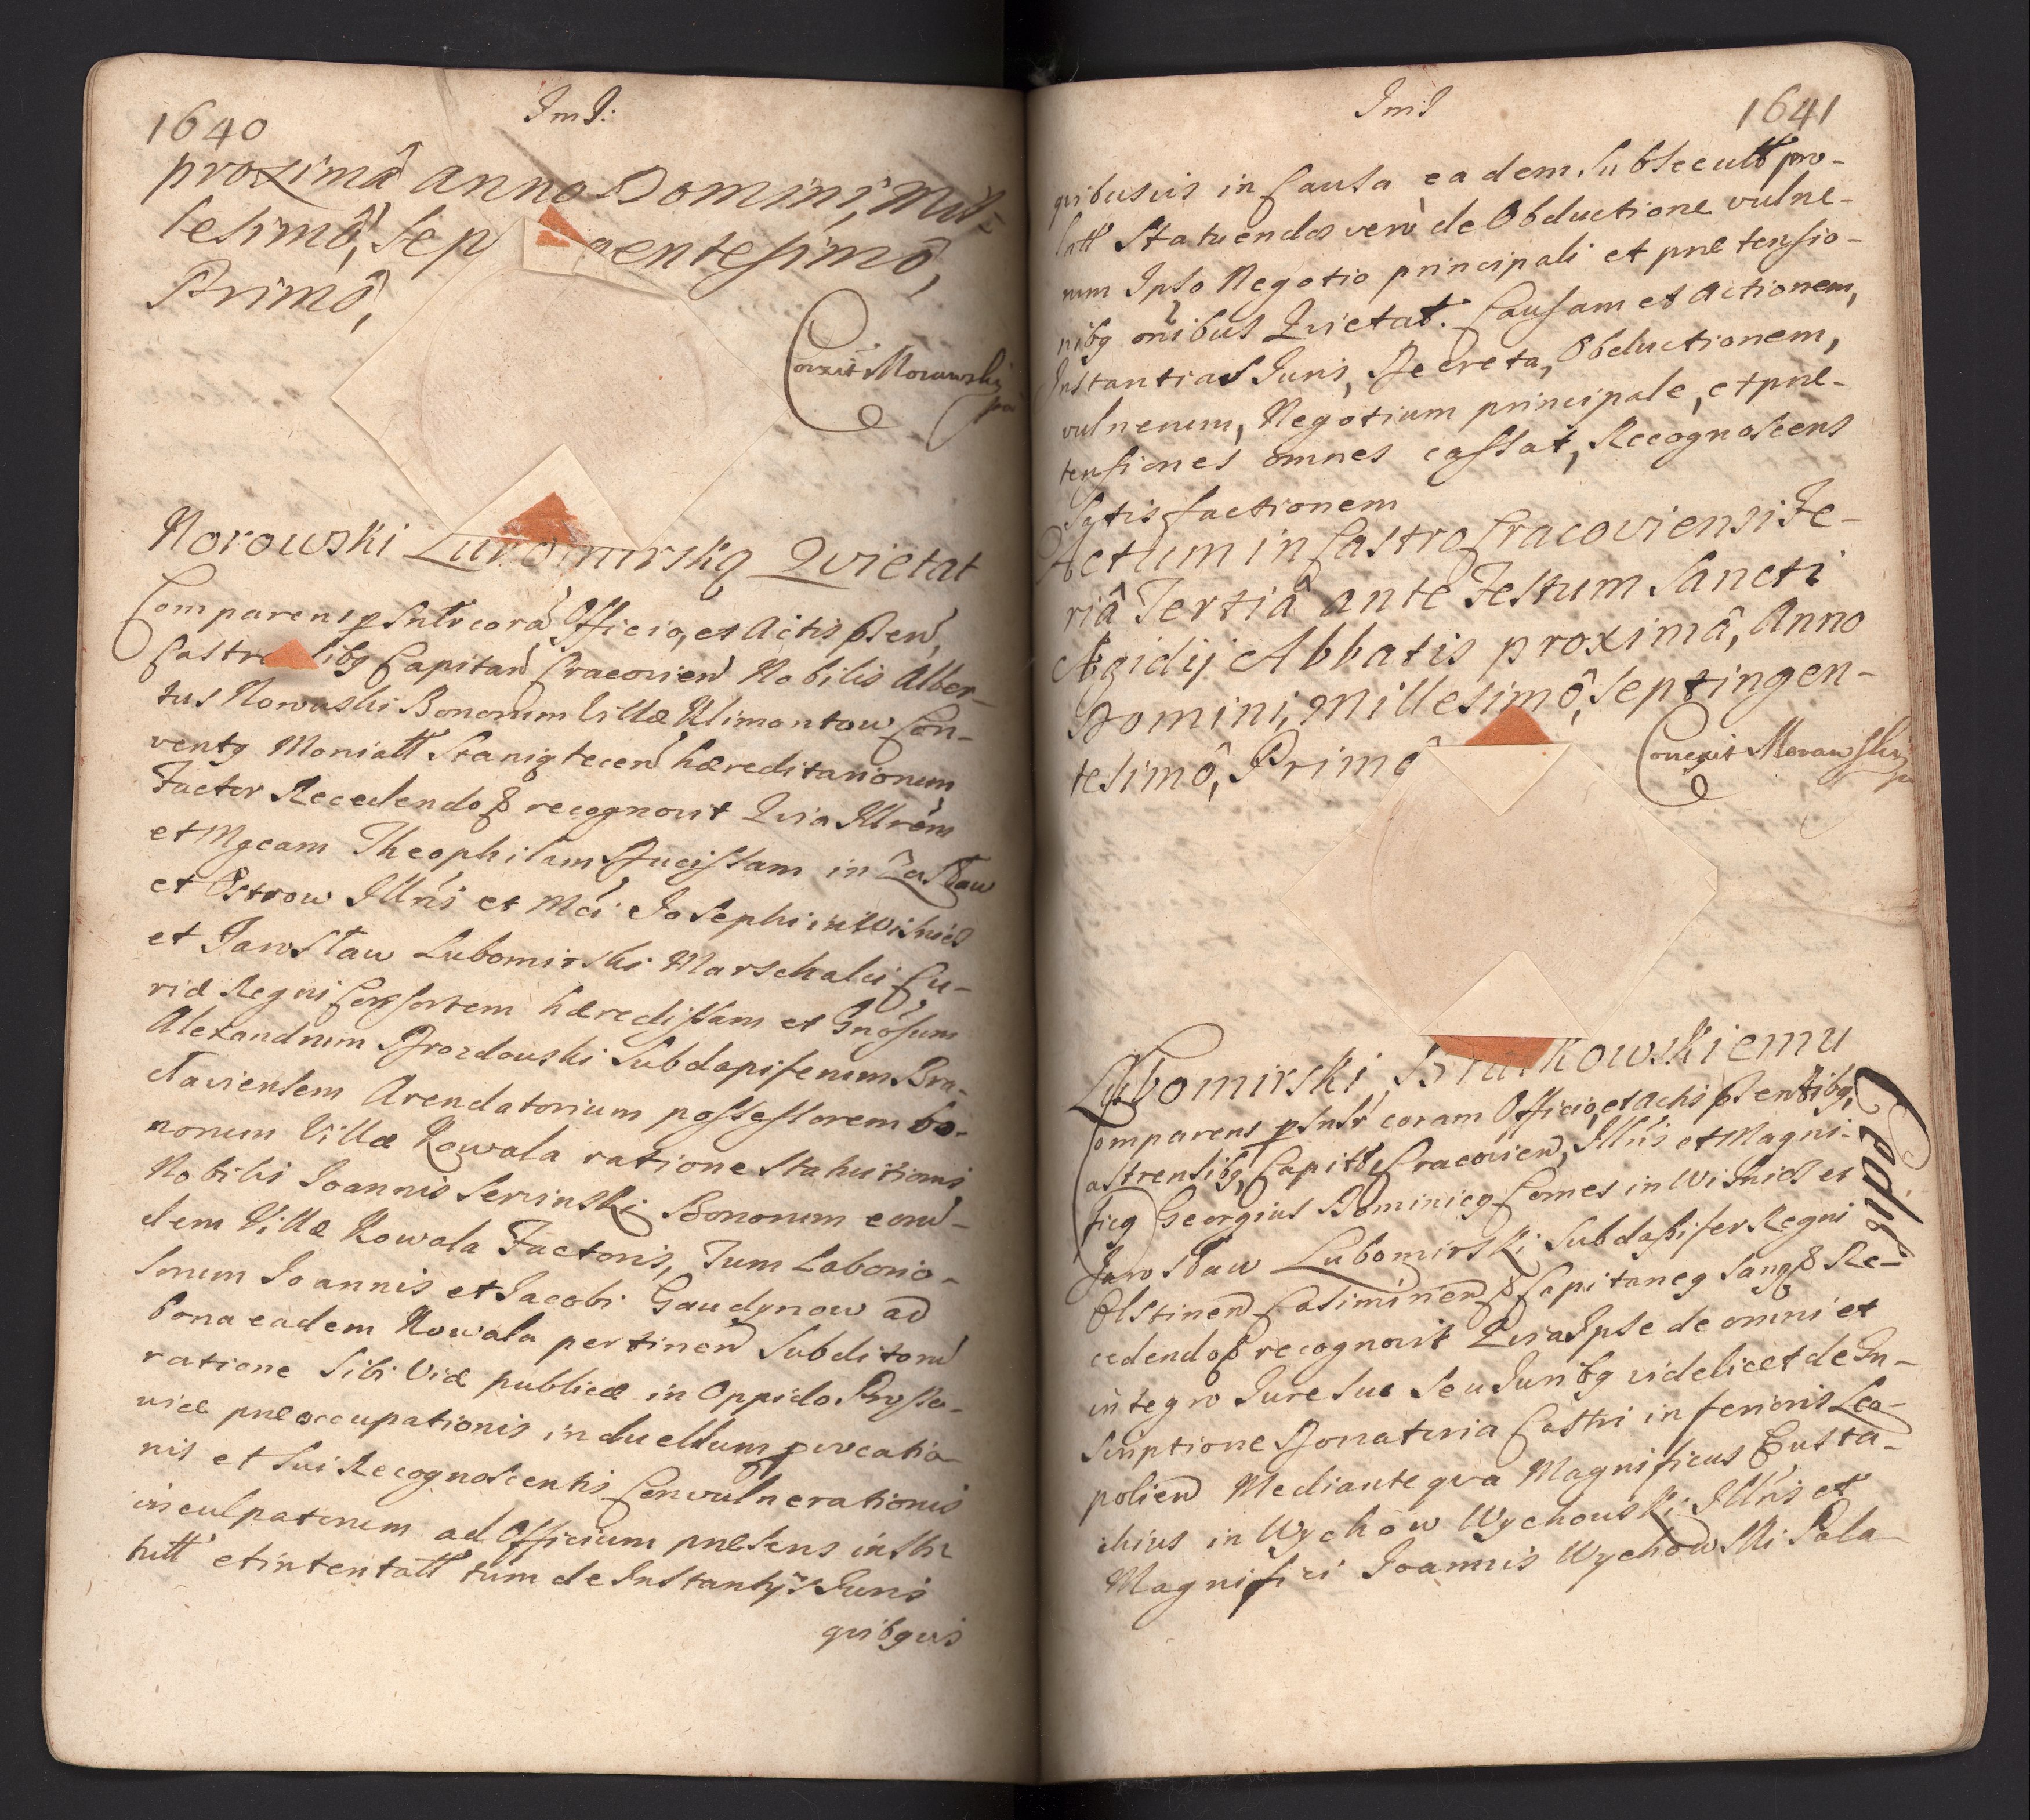 1640
ImJ:
proximâ anno Domini, Mil=
lesimô, Sep gentesimô,
Primô,
Correxit Morawski
Norowski Lubomirska Qvietat
Comparens psnlr corã Officio, et Actis psen
Castra libg Capitan Cracovien Nobilis Alber-
tus Norowski Bonorum Villæ Klimontow Con-
ventg Moniatt Staniątecen hæreditariorum
Factor Recedendo recognovit Qvia Illrem
et Mgcam Theophilam Ducissam in Zasław
et Ostrow Illris et Mci Josephi in Wisnicz
et Jarosław Lubomirski Marschalci Cu-
riæ Regni Consortem hæredissam et Gnosum
Alexandrum Drozdowski Subdapiferum Bra-
claviensem Arendatorium possessorem bo-
norum Villæ Kowala ratione Statutionis
Nobilis Joannis Serinski Bonorum eorun-
dem Villæ Kowala Factoris, Tum Laborio-
sorum Joannis et Jacobi Gaudynow ad
bona eadem Kowala pertinen Subditorũ
ratione Sibi Viæ publicæ in Oppido Prosso-
vice præoccupationis, in duellum pvocatio-
nis et Sui Recognoscentis Convulnerationis
inculpatorum ad Officium præsens insti-
tutt et intentatt tum de Instantijs Juris
qvibgvis
ImJ
1641
qvibusvis in Causa eadem Subsecutt pro-
latt Statuendos vero de Obductione vulne-
rum Ipso Negotio principali et prætensio-
nibg onibus Qvietat. Causam et Actionem,
Instantias Juris, Decreta, Obductionem,
vulnerum, Negotium principale, et præ-
tensiones omnes cassat, Recognoscens
Satisfactionem
Actum in Castro Cracoviensi Fe-
riâ Tertiâ ante Festum Sancti
Ægidij Abbatis proximâ, Anno
Domini, Millesimô, Septingen-
tesimô, Primô
Correxit Morawski
Lubomirski, kowskiemu
Cedit
Comparens psnlr coram Officio, et Actis psentibg,
Castrensibg, Capitt, Cracovien, Illris et Magni-
ficg Georgius Dominicg Comes in Wisnicz et
Jarosław Lubomirski Subdapifer Regni
Olstinen Casimirien Capitaneg Sang Re-
cedendo recognovit Qvia Ipse de omni et
integro Jure Suo Seu Juribg videlicet de In-
scriptione Donatoria Castri inferioris Leo-
polien Mediante qva Magnificus Eusta-
chius in Wychow Wychowski Illris et
Magnifici Joannis Wychowski Pala-